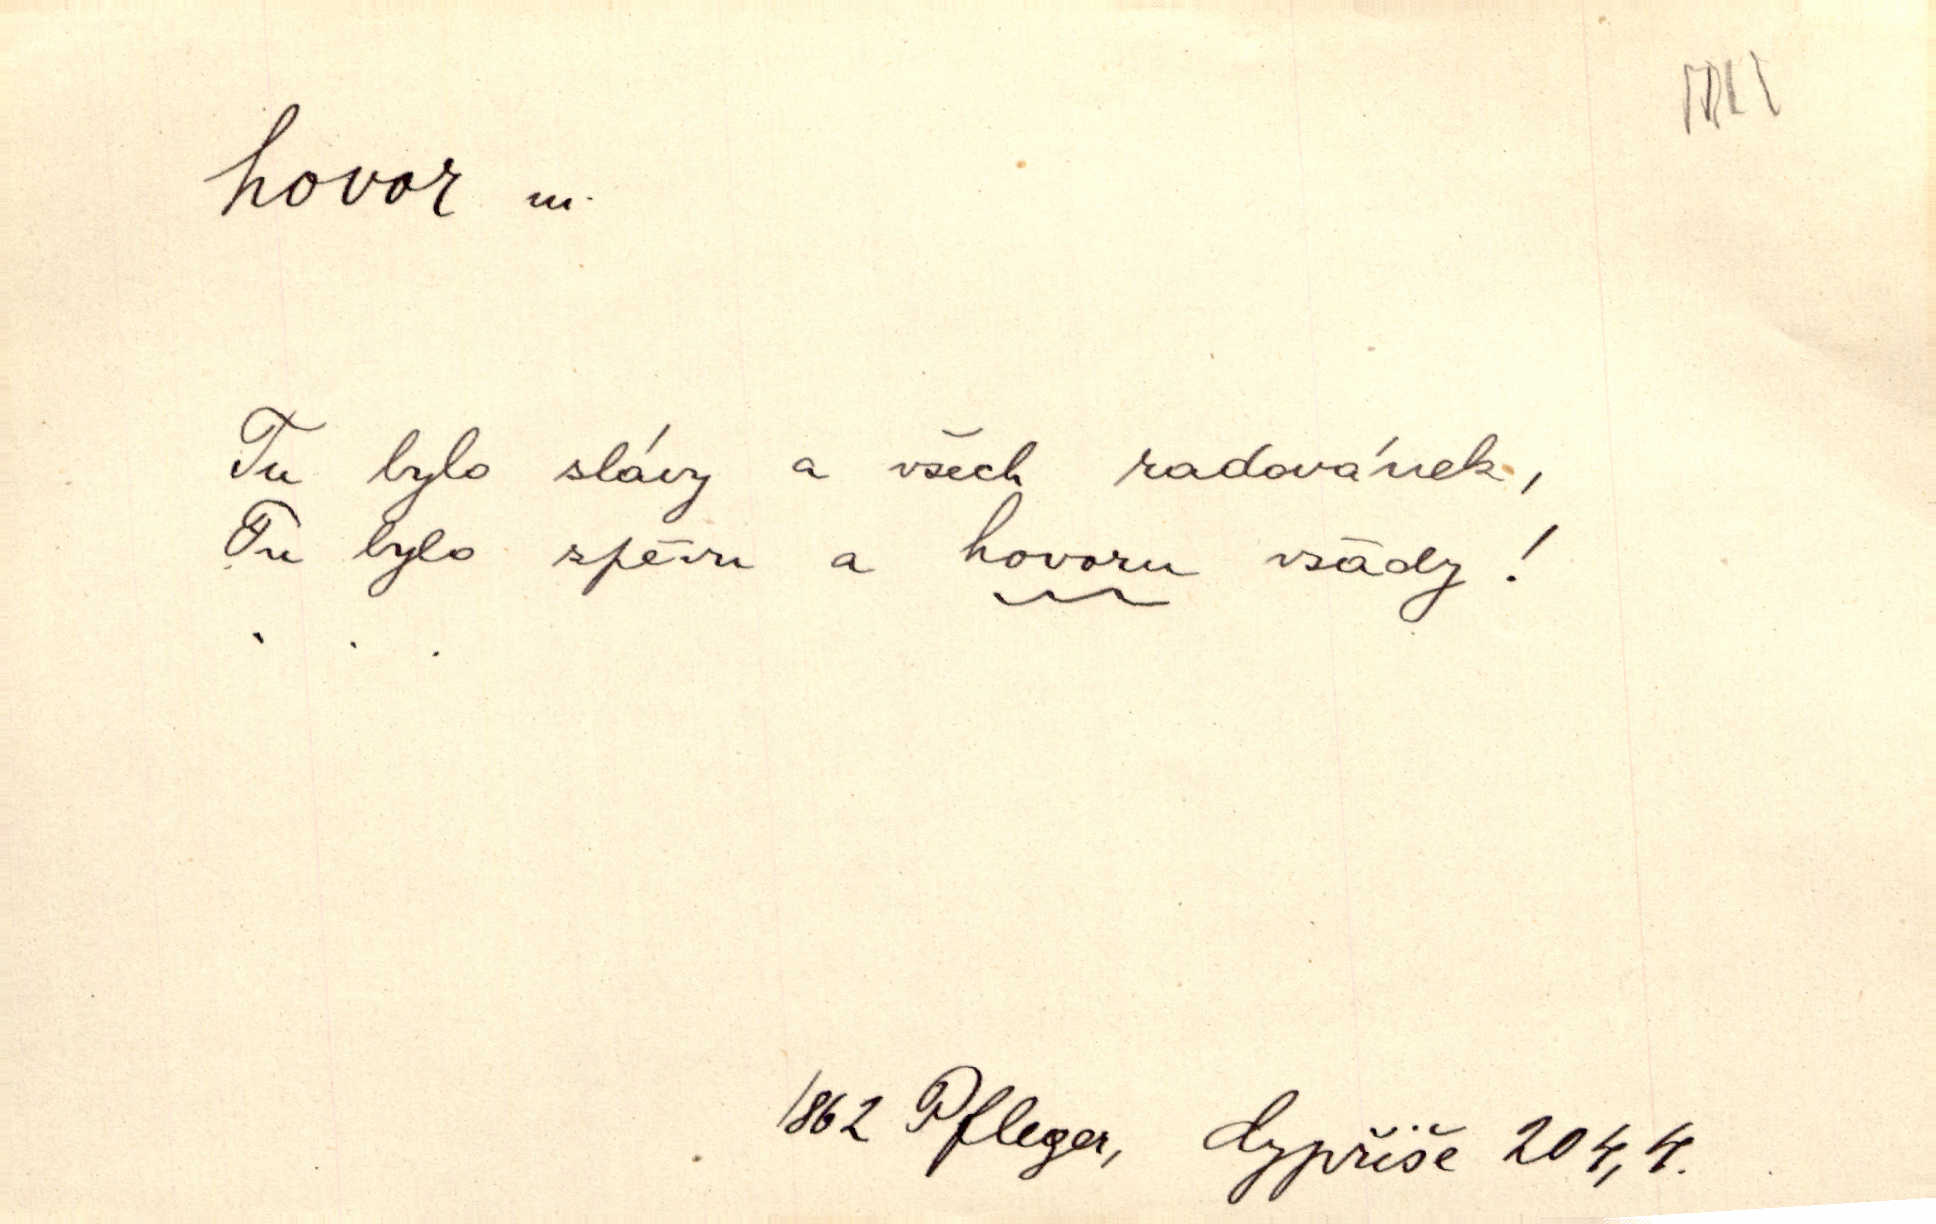 hovor m.
Tu bylo slávy a všech radovánek,
Tu bylo zpěvu a hovoru všády!
. . .
1862 Pfleger, Cypřiše 204, 4.